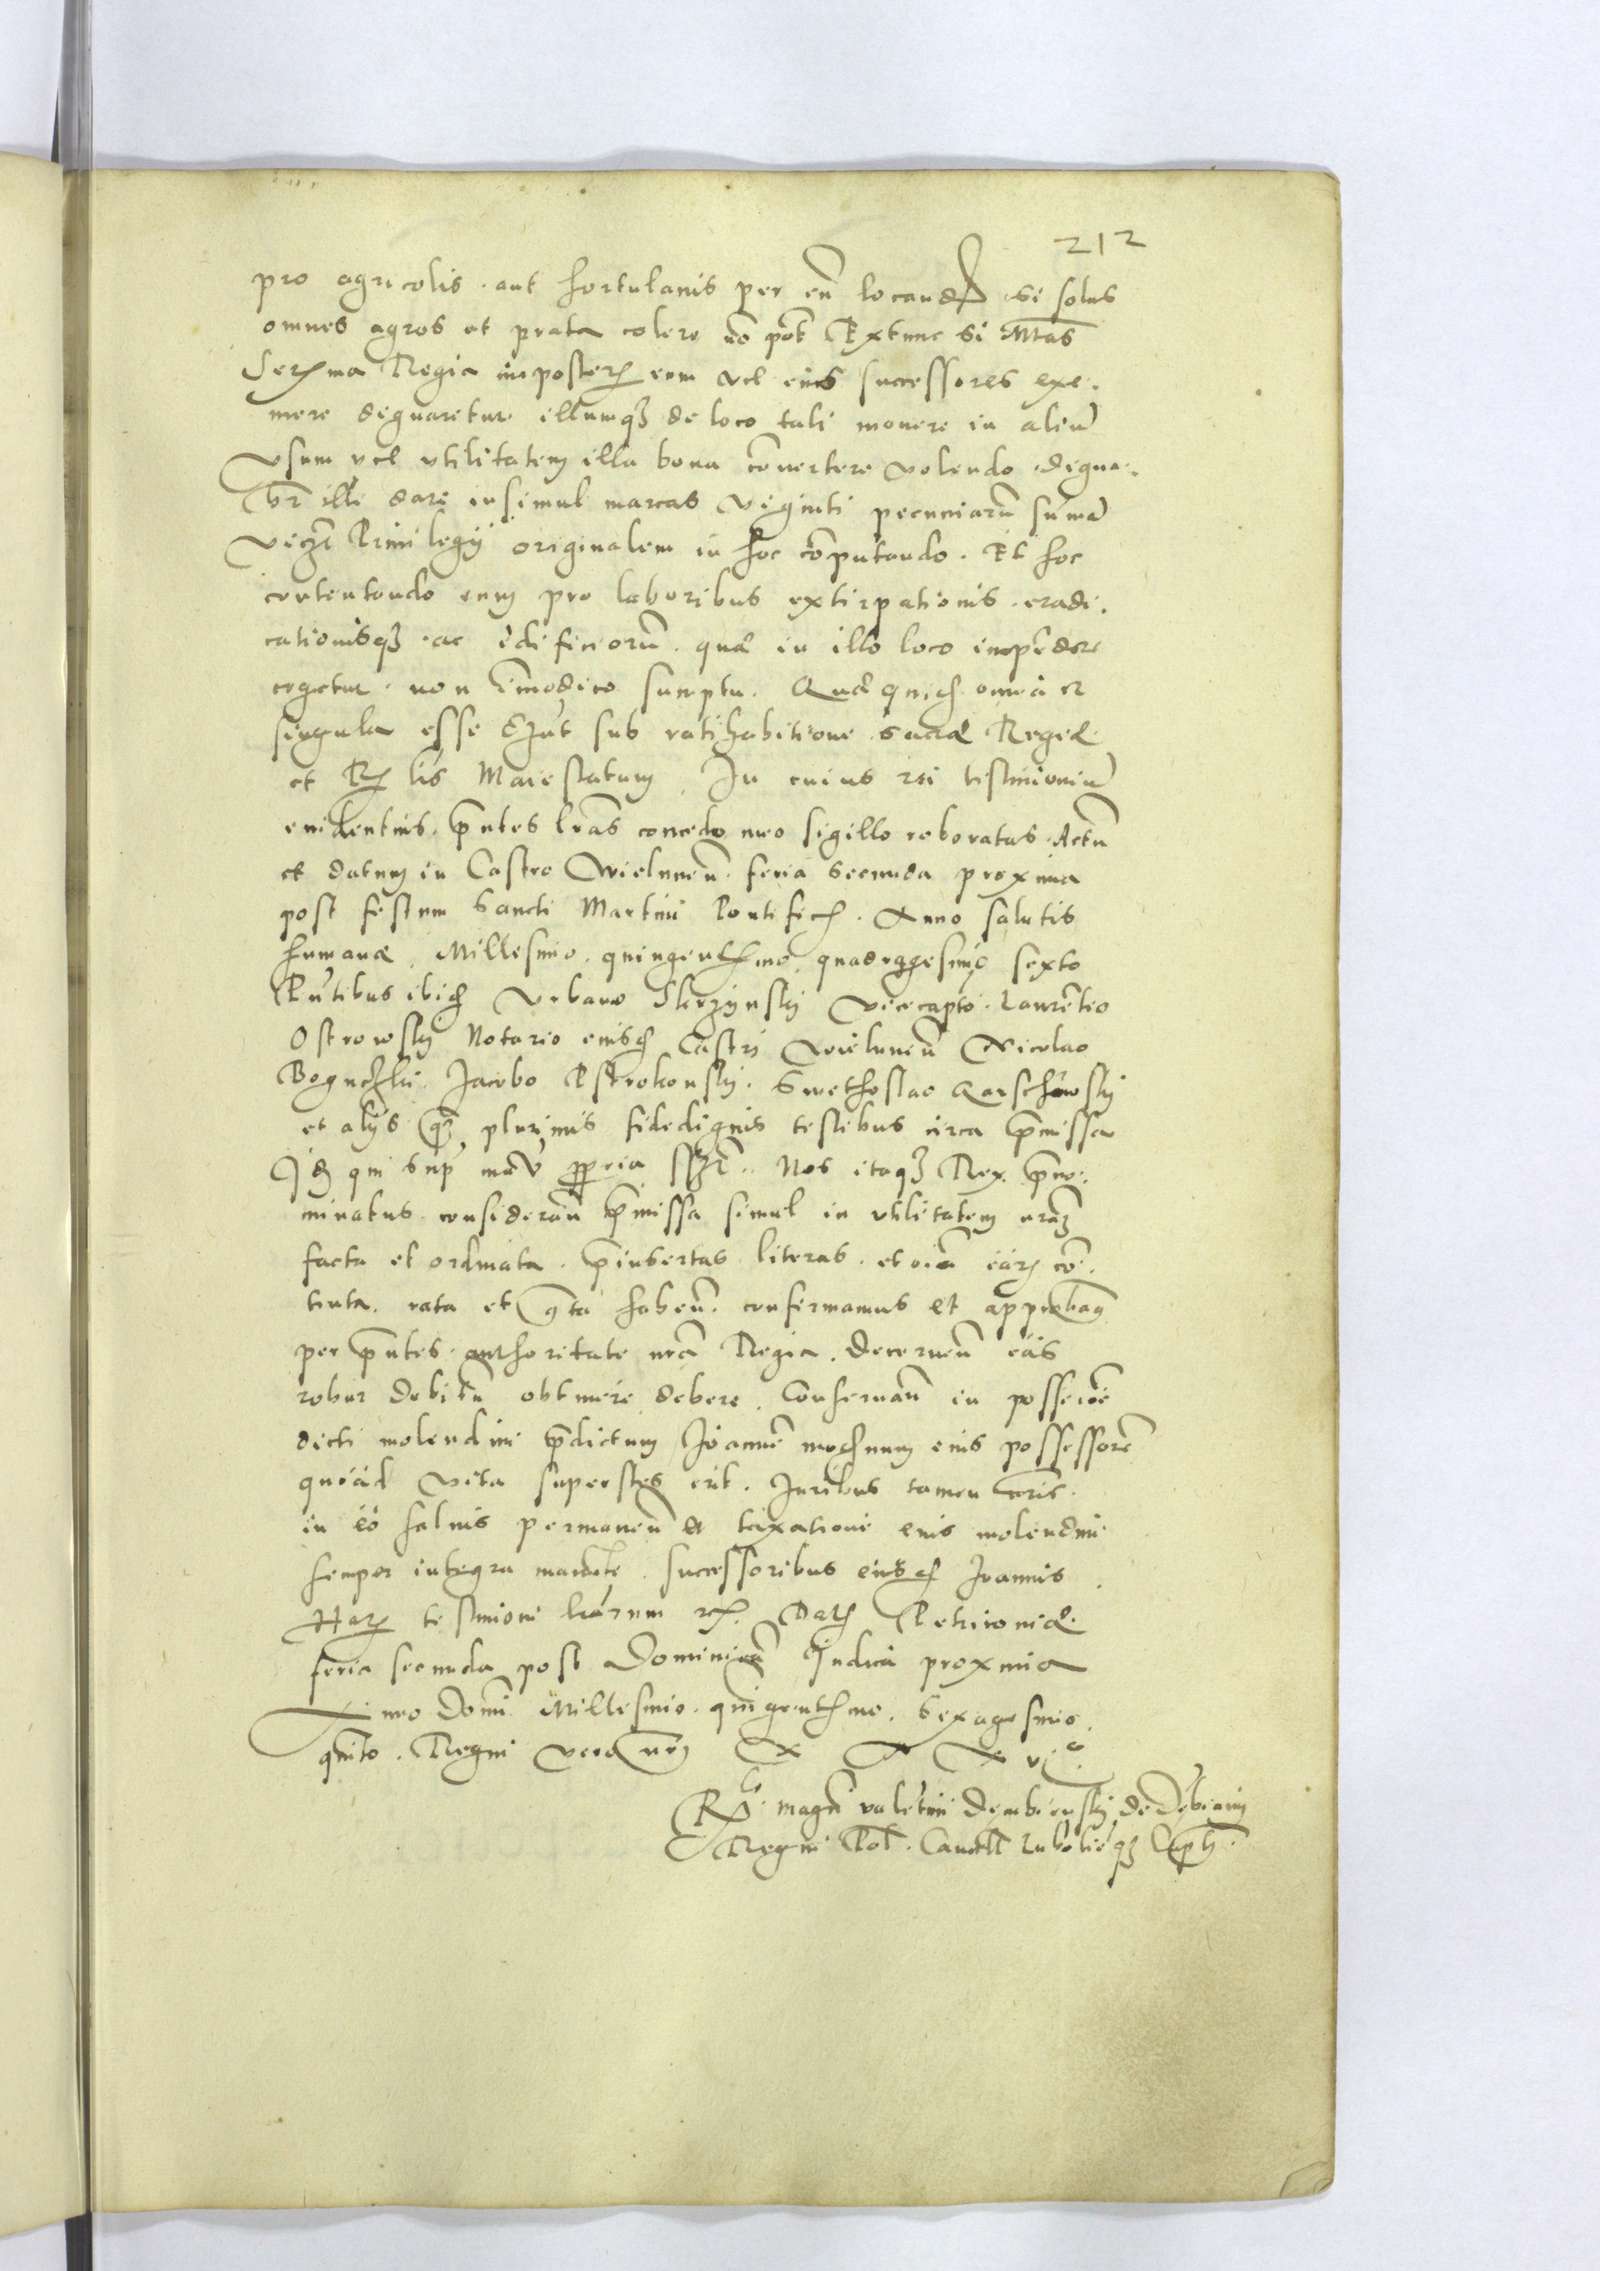 212
pro agricolis aut hortulanis per eū locand si solus
omnes agros et prata colere nō pōt Extunc si Mtas
Serma Regia imposterū eum vel eius successores exe
mere dignaretur illumq de loco tali movere in aliū
Vsum vel vtilitatem illa bona cōvertere volendo digna
br illi dare insimul marcas viginti pecuniarū sumā
viczt Privilegij originalem in hoc cōputando. Et hoc
contentando eum pro laboribus extirpationis eradi
cationisq ac edificiorū quæ in illo loco impēdere
cogetur non īmodico sumptu. Quæ quid omnia et
singula esse debūt sub ratihabitione sacræ Regiæ
et Rlis Maiestatum In cuius rei testimoniū
evidentius pntes lras concedo meo sigillo roboratas Actū
et datum in Castro Wielunen feria secunda proxima
post festum Sancti Martini Pontificis Anno salutis
humanæ Millesimo quingentesimo quadragesimo sexto
Pntibus ibid Vrbano Skrzynsky vicecapto Laurētio
Ostrowsky Notario eiusd Castri Wielunen Nicolao
Boguczki Jacobo Pstrokonsky Swethoslao Karschnwsky
et alijs qz plurimis fidedignis testibus circa pmissa
Idē qui sup manu ppria sszt Nos itaq Rex pno
minatus considerān pmissa simul in vtilitatem nram
facta et ordinata pinsertas literas et oīa eārū cō
tenta rata et grata habeñ confirmamus et approbam
per pntes authoritate nrā Regia Decerneñ eas
robur debitū obtinere debere Conservān in possesiōe
dicti molendini pdictum Joannē mochnum eius possessorē
quoad vita superstes erit Juribus tamen nris
in eo salvis permaneñ et taxatione eius molendini
semper integra manēte successoribus eiusd Joannis
Harū testimonio lrarum etc Datū Petricoviæ
feria secunda post Dominicā Judica proxima
Anno Domi Millesimo quigentesimo Sexagesimo
quito Regni vero nri X X X vjo
Rlo magci valētini Dembiensky de Dębiany
Regni Pol Cancell